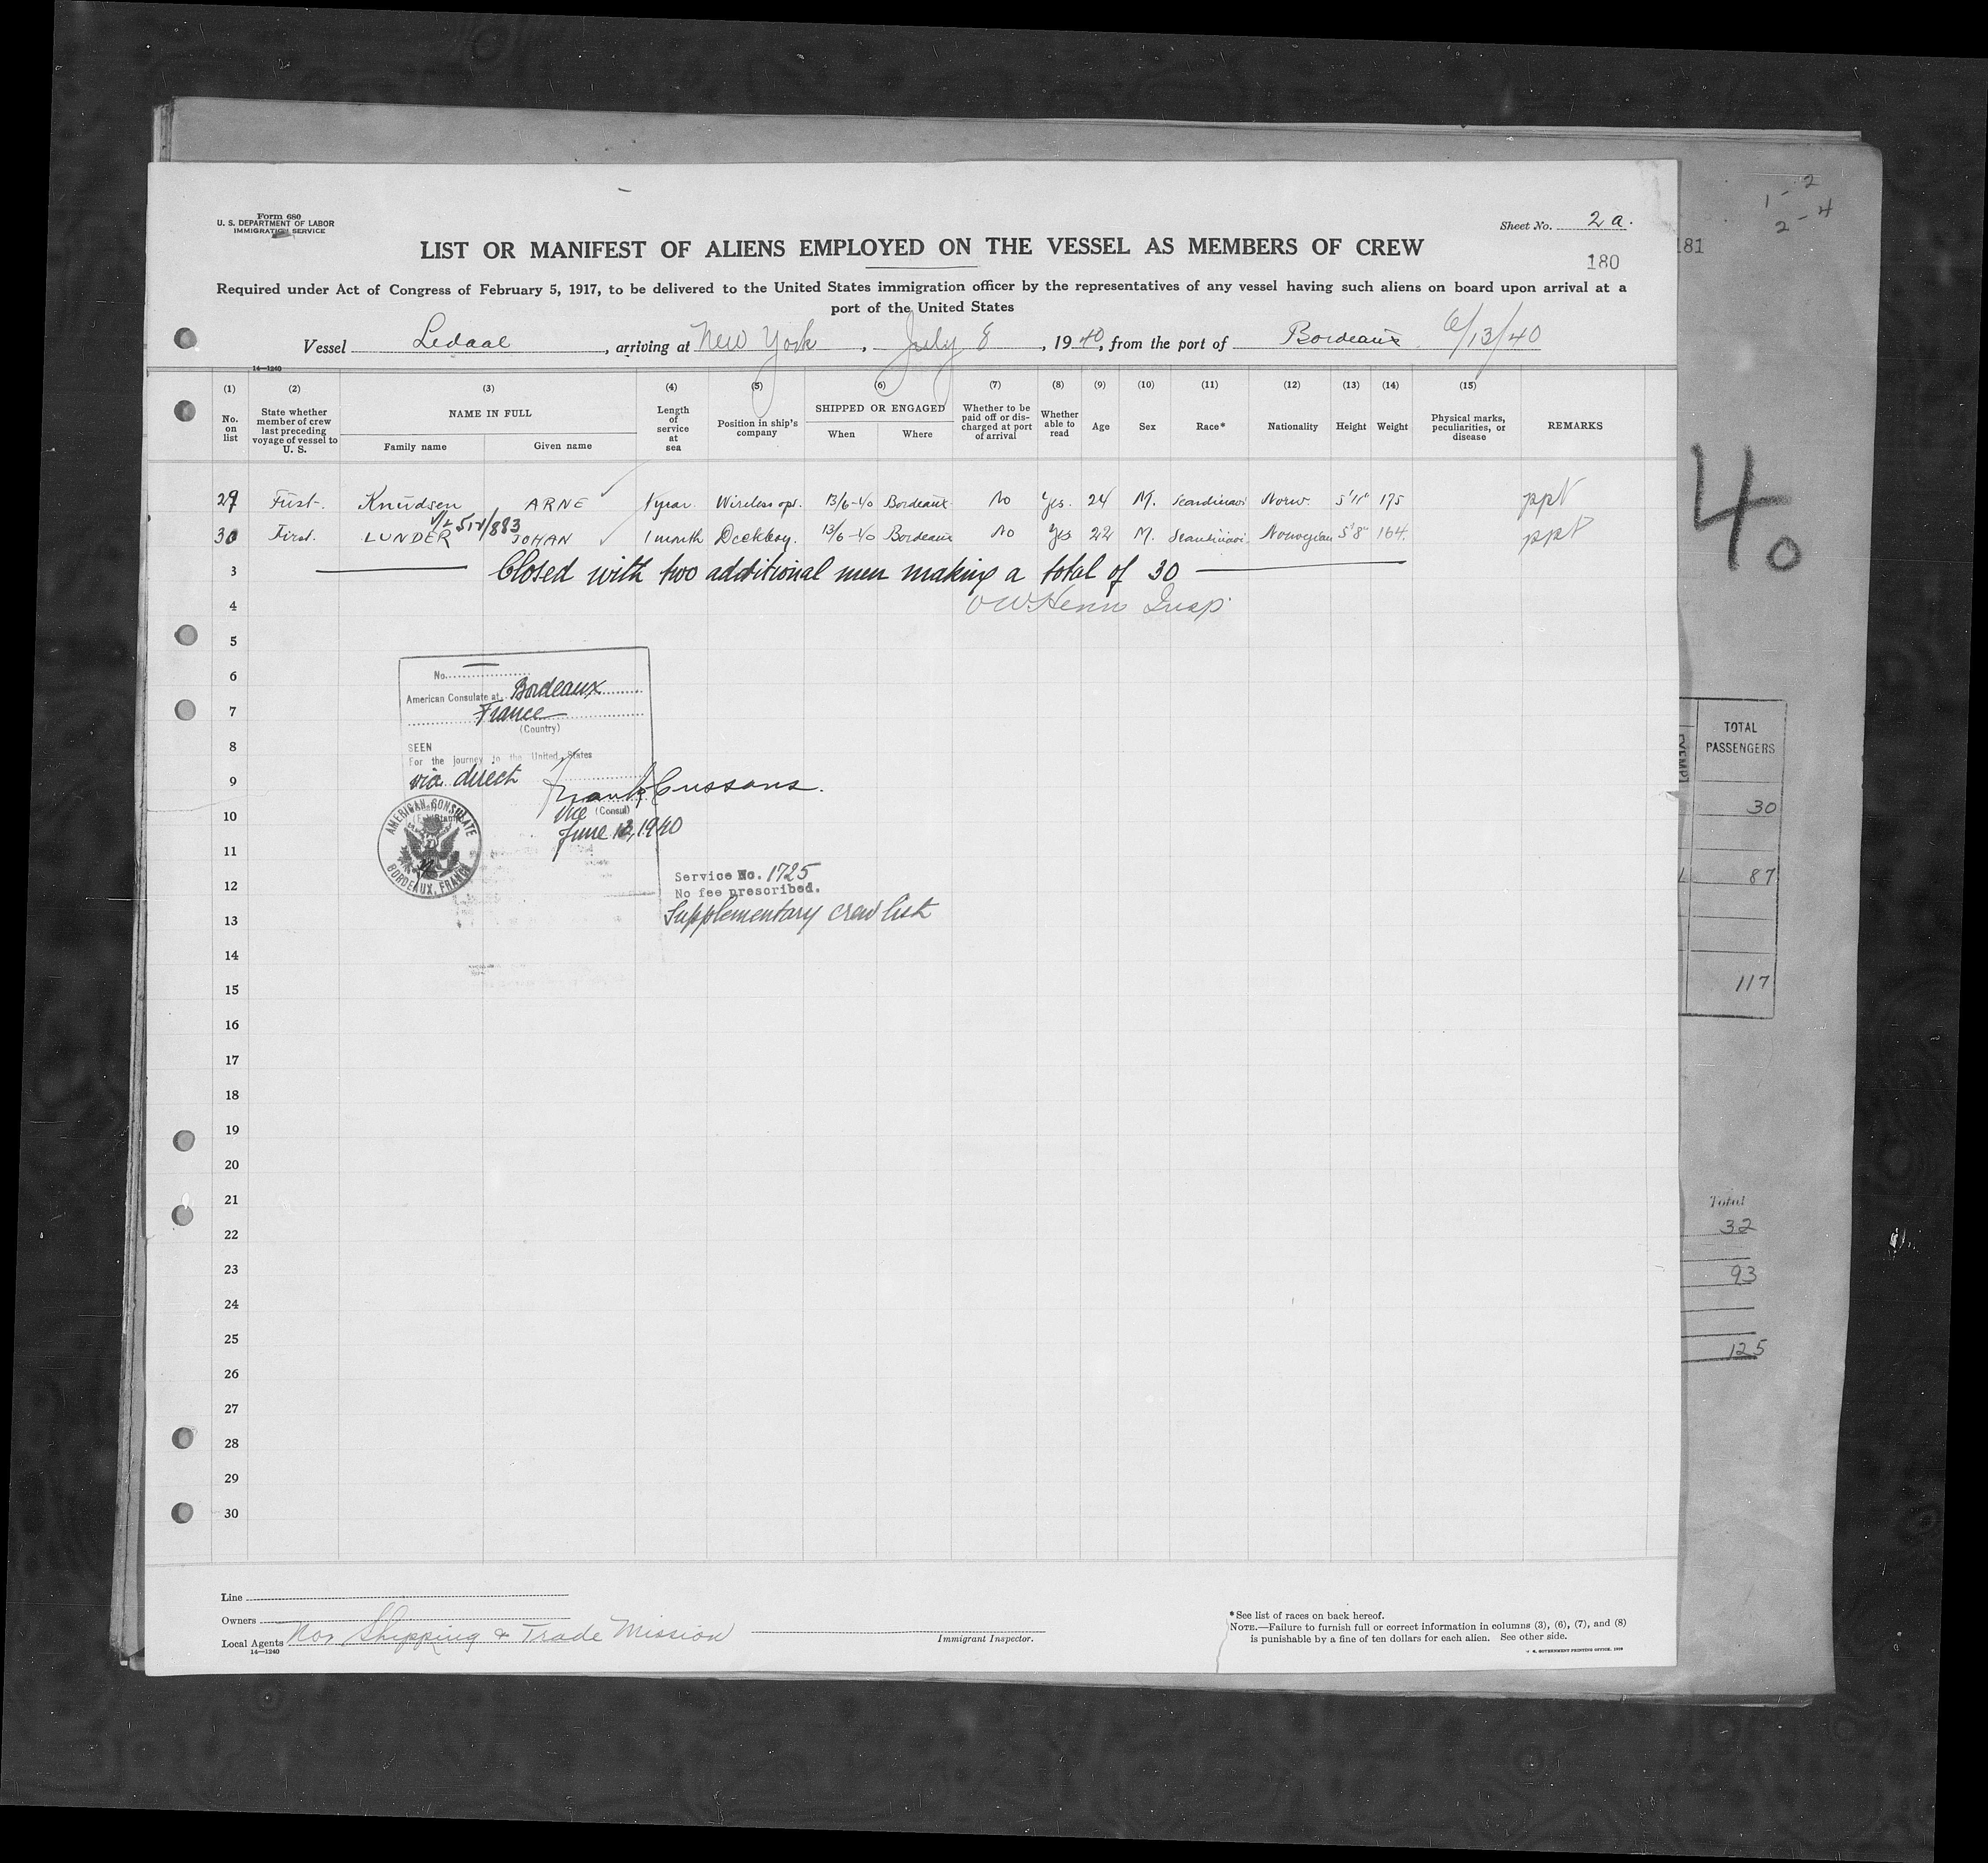 Form 680
U. S. DEPARTMENT OF LABOR
IMMIGRATION SERVICE
Sheet No. 2 a.
1 - 2
2 - 4
LIST OR MANIFEST OF ALIENS EMPLOYED ON THE VESSEL AS MEMBERS OF CREW
180
181
Required under Act of Congress of February 5, 1917, to be delivered to the United States immigration officer by the representatives of any vessel having such aliens on board upon arrival at a
port of the United States
Vessel Ledaal, arriving at New York, July 8, 1940, from the port of Bordeaux 6/13/40
14—1240
(1) (2) (3) (4) (5) (6) (7) (8) (9) (10) (11) (12) (13) (14) (15)
No. on list
State whether member of crew last preceding voyage of vessel to U. S.
NAME IN FULL
Family name Given name
Length of service at sea
Position in ship's company
SHIPPED OR ENGAGED
When Where
Whether to be paid off or discharged at port of arrival
Whether able to read
Age Sex Race* Nationality Height Weight
Physical marks, peculiarities, or disease
REMARKS
29 First. Knudsen ARNE 1 year Wireless opr. 13/6-40 Bordeaux No Yes. 24 M. Scandinavi Norw. 5'11" 175 ppt
V/2 517/883
30 First. LUNDER JOHAN 1 month Deckboy. 13/6-40 Bordeaux No Yes 22 M. Scandinavi. Norwegian 5'8" 164. ppt
3 Closed with two additional men making a total of 30
4 Insp.
40
5
6
7
8
9
10
11
12
13
14
15
16
17
18
19
20
21
22
23
24
25
26
27
28
29
30
No.
American Consulate at Bordeaux
France
(Country)
SEEN
For the journey to the United States
via direct
Vice (Consul)
June 13, 1940
AMERICAN CONSULATE
BORDEAUX, FRANCE
Service No. 1725
No fee prescribed.
Supplementary crew list
TOTAL
PASSENGERS
30
87
117
Total
32
93
125
Line
Owners
Local Agents Nor Shipping & Trade Mission
14—1240
Immigrant Inspector.
*See list of races on back hereof.
NOTE.—Failure to furnish full or correct information in columns (3), (6), (7), and (8)
is punishable by a fine of ten dollars for each alien. See other side.